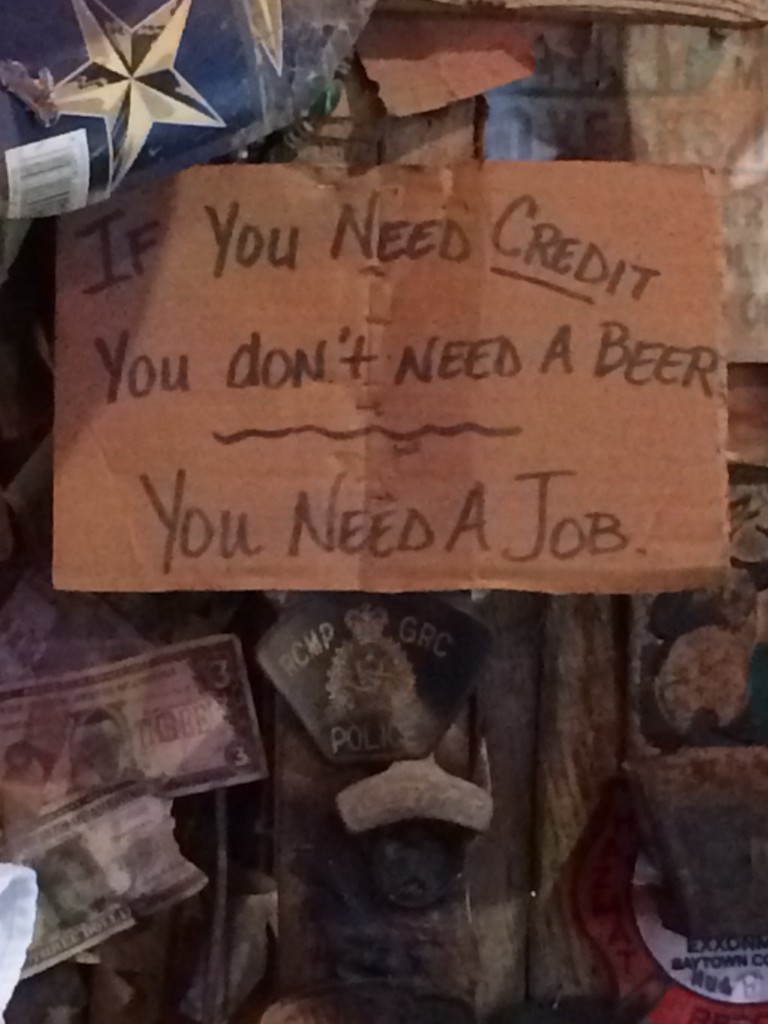 IF YOU NEED CREDIT
YOU dON't NEED A BEER
YOU NEED A JOB.
RCMP GRC
POLICE
3
3
HAZMAT
BAYTOWN
AUG